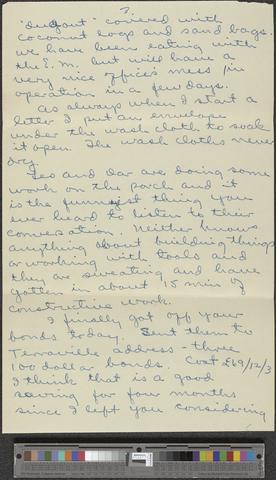 3.
"dugout" covered with
coconut logs and sand bags.
We have been eating with
the E.M. but will have a
very nice officers mess in
operation in a few days.
As always when I start a
letter I put an envelope
under the wash cloth to soak
it open. The wash cloths never
dry.
Leo and Dar are doing some
work on the porch and it
is the funnyist thing you
ever heard to listen to their
conversation. Neither knows
anything about building things
or working with tools and
they are sweating and have
gotten in about 15 min of
constructive work.
I finally got off your
bonds today. Sent them to
Terraville address - three
100 dollar bonds. Cost £69/12/3
I think that is a good
saving for four months
since I left you considering